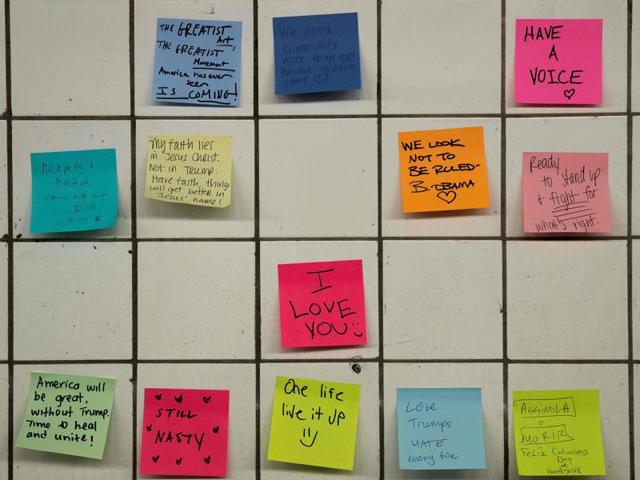 THE GREATIST
Art,
THE GREATIST
Movement
America has ever
seen
IS COMING!
We need
community
more than ever
Believe in each
other ♡
HAVE
A
VOICE
♡
My faith lies
in Jesus Christ.
Not in Trump.
Have faith, things
will get better in
Jesus' name!
WE LOOK
NOT TO
BE RULED-
B. OBAMA
♡
Ready
to stand up
+ fight for
what's right.
I
LOVE
YOU
America will
be great,
without Trump.
Time to heal
and unite!
STILL
NASTY
One life
live it up
Love
Trumps
HATE
every time
ASSIMILA
O
MORIR
FELIZ Columbus
Day